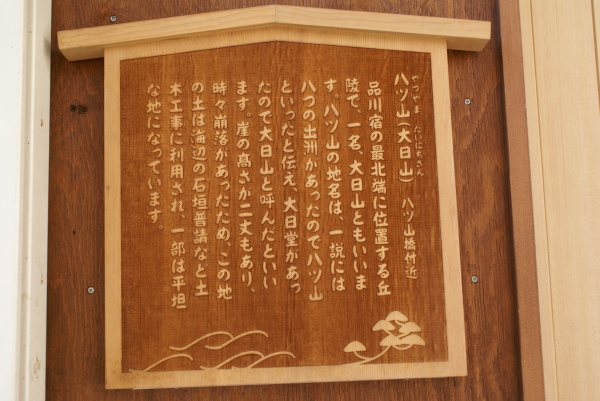 やつやま だいにちさん
八ツ山(大日山) 八ツ山橋付近
品川宿の最北端に位置する丘
陵で、一名、大日山ともいいま
す。八ツ山の地名は、一説には
八つの出洲があったので八ツ山
といったと伝え、大日堂があっ
たので大日山と呼んだといい
ます。崖の高さが二丈もあり、
時々崩落があったため、この地
の土は海辺の石垣普請など土
木工事に利用され、一部は平坦
な地になっています。